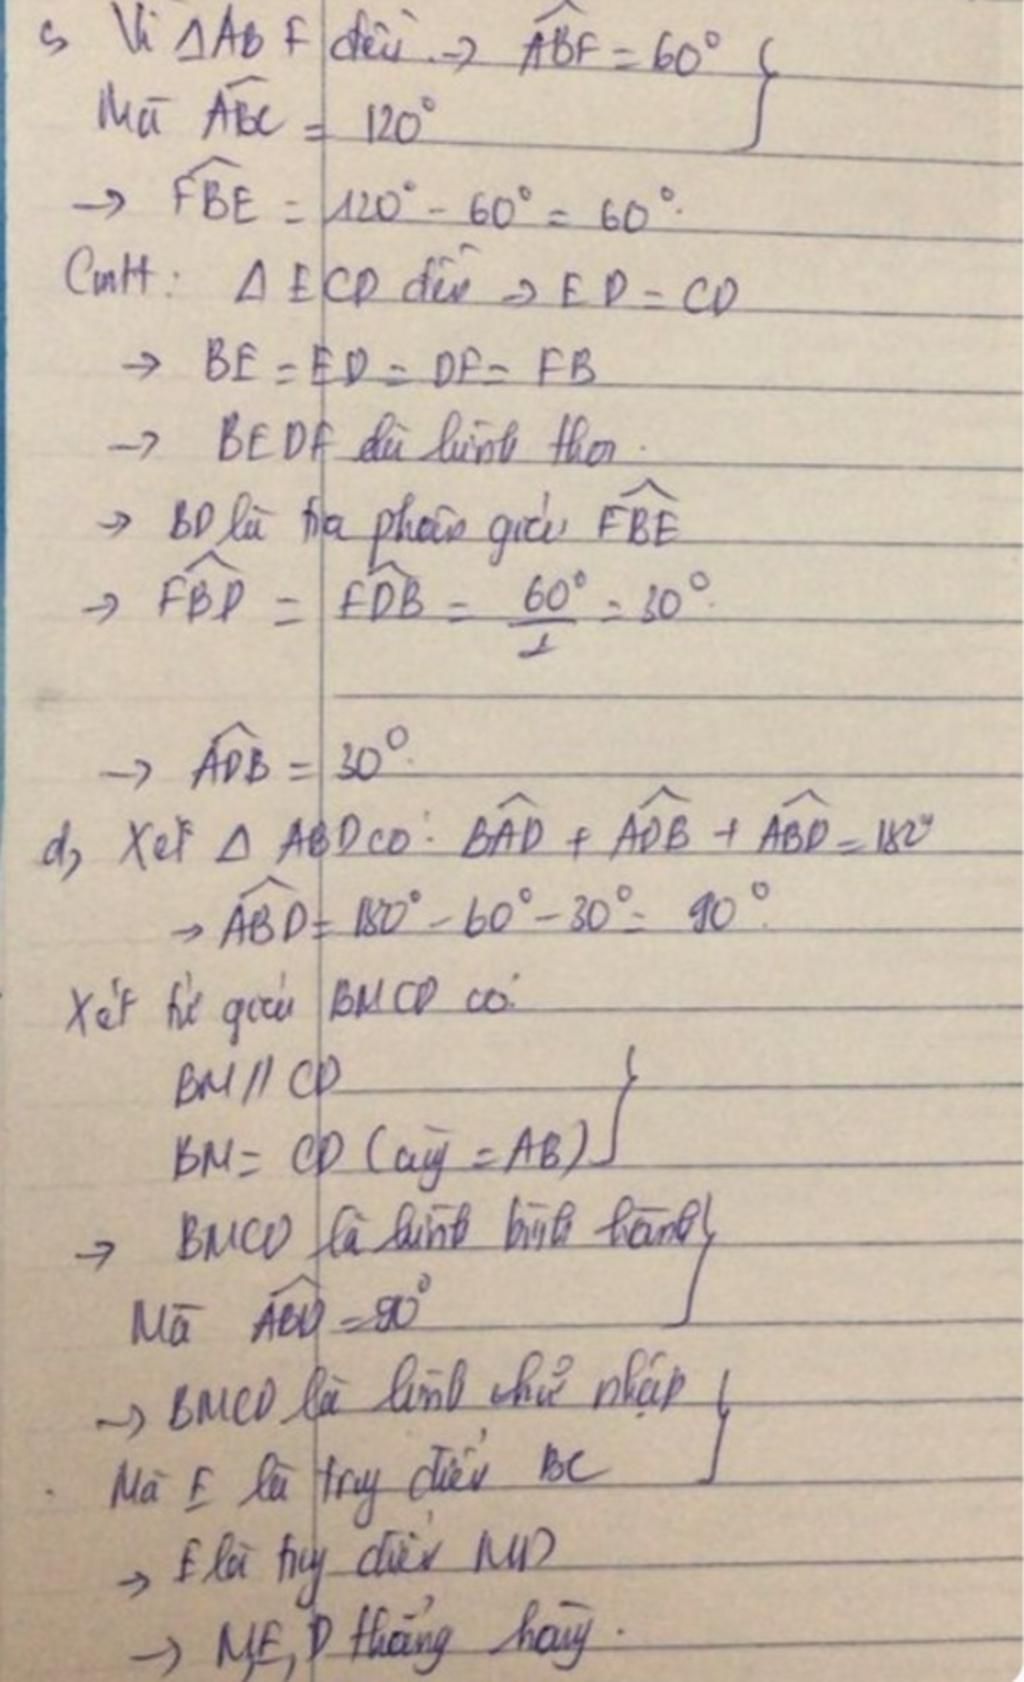 c, Vì ΔABF đều → ∠ABF = 60°
Mà ∠ABC = 120°
→ ∠FBE = 120° - 60° = 60°.
CmH: ΔECD đều → ED = CD
→ BE = ED = DF = FB
→ BEDF là hình thoi.
→ BD là tia phân giác ∠FBE
→ ∠FBD = ∠FDB = 60°/2 = 30°.
→ ∠ADB = 30°.
d, Xét Δ ABD có: ∠BAD + ∠ADB + ∠ABD = 180°
→ ∠ABD = 180° - 60° - 30° = 90°.
Xét tứ giác BMCD có:
BM // CD
BM = CD (cùng = AB)
→ BMCD là hình bình hành
Mà ∠ABD = 90°
→ BMCD là hình chữ nhập
Mà E là trug điểm BC
→ E là trug điểm MD
→ M,E,D thẳng hàng.